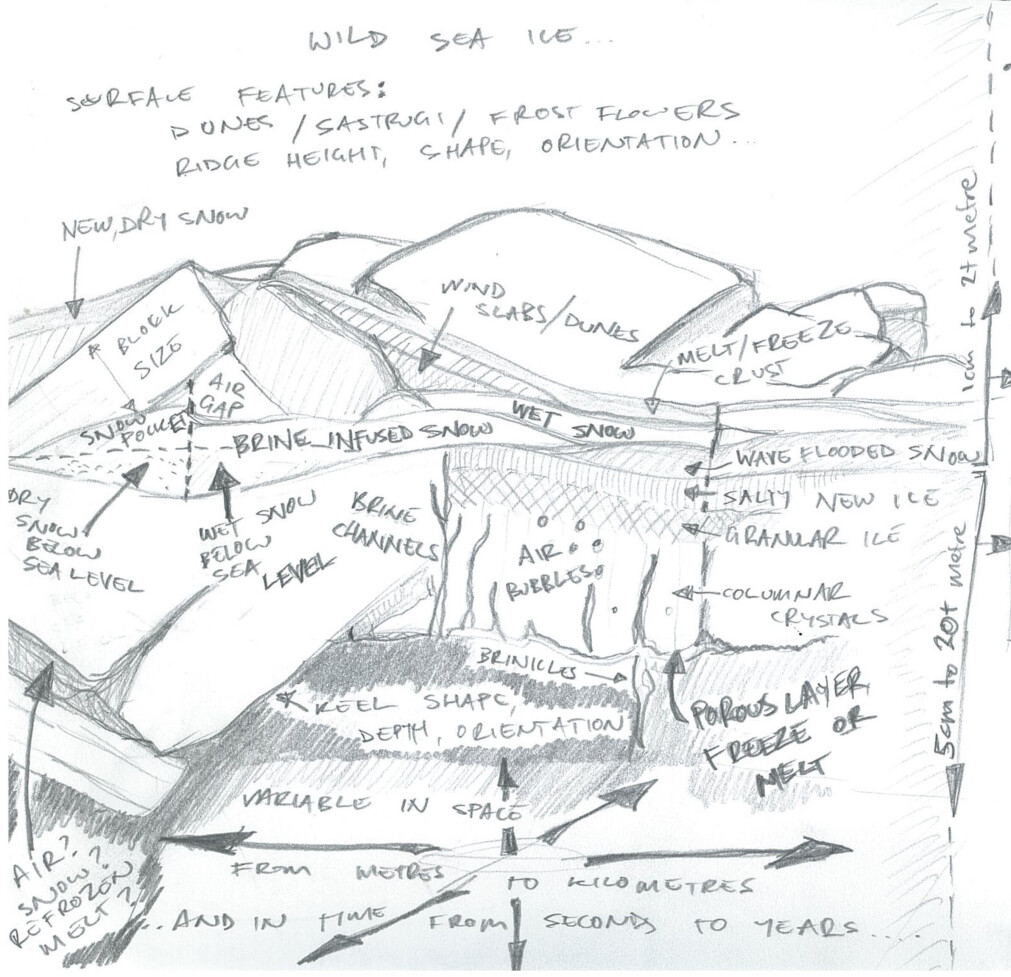 WILD SEA ICE...
SURFACE FEATURES:
DUNES / SASTRUGI / FROST FLOWERS
RIDGE HEIGHT, SHAPE, ORIENTATION...
NEW, DRY SNOW
WIND
SLABS/DUNES
BLOCK
SIZE
MELT/FREEZE
CRUST
AIR
GAP
SNOW
POCKET
WET SNOW
BRINE INFUSED SNOW
WAVE FLOODED SNOW
SALTY NEW ICE
GRANULAR ICE
COLUMNAR
CRYSTALS
DRY
SNOW
BELOW
SEA LEVEL
WET SNOW
BELOW
SEA LEVEL
BRINE
CHANNELS
AIR
BUBBLES
BRINICLES
KEEL SHAPE,
DEPTH, ORIENTATION
POROUS LAYER,
FREEZE OR
MELT
1cm to 2+ metre
5cm to 20+ metre
AIR?
SNOW?
REFROZEN
MELT?
VARIABLE IN SPACE
FROM METRES TO KILOMETRES
...AND IN TIME FROM SECONDS TO YEARS.....